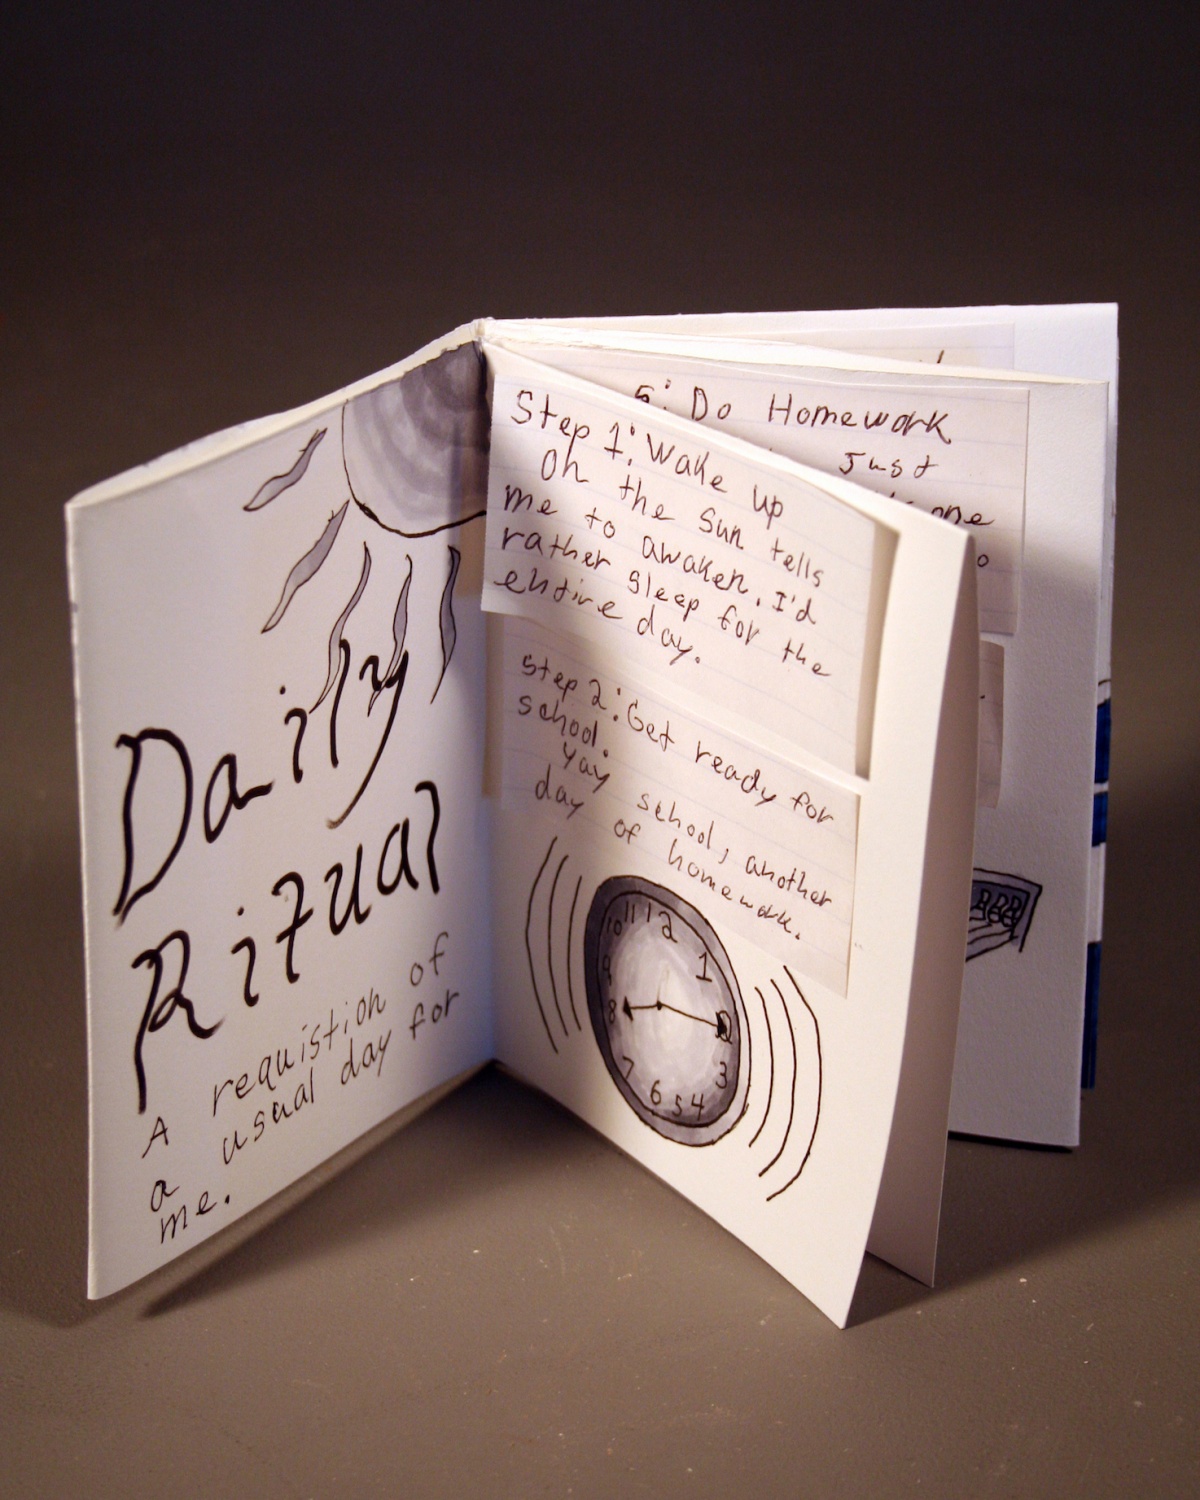 Daily
Ritual
A requistion of
a usual day for
me.
Step 1: Wake up
Oh the sun tells
me to awaken. I'd
rather sleep for the
entire day.
Step 2: Get ready for
school.
Yay school, another
day of homework.
10 11 12
9 1
8 2
7 3
6 5 4
5: Do Homework
Just
one